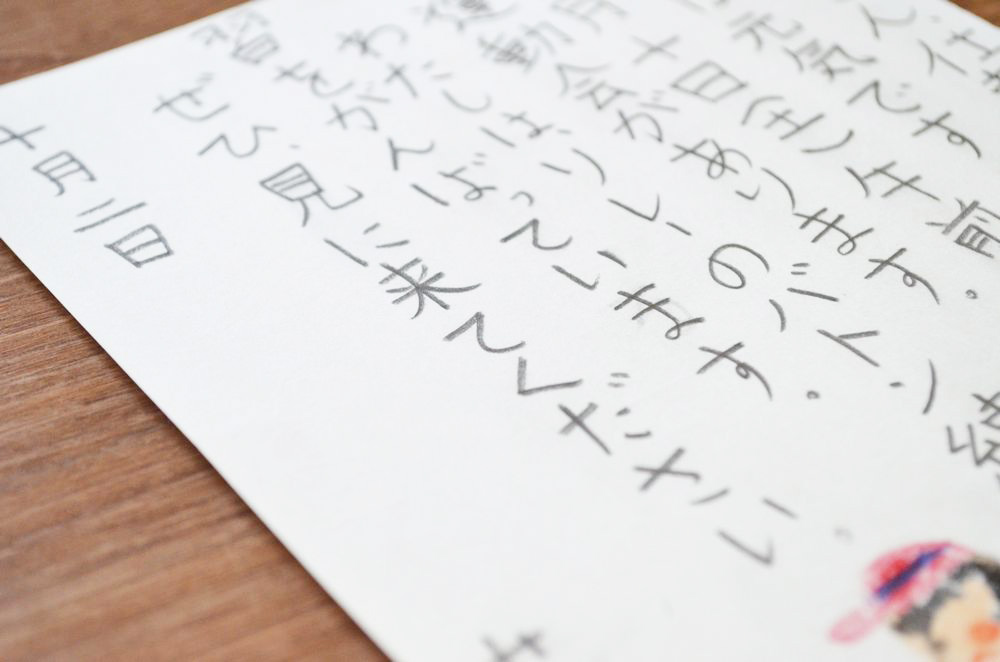 元気です
月十日(土)午前
運動会があります。
わたしは、リレーのバトン練
習をがんばっています。
ぜひ見に来てください。
十月二日